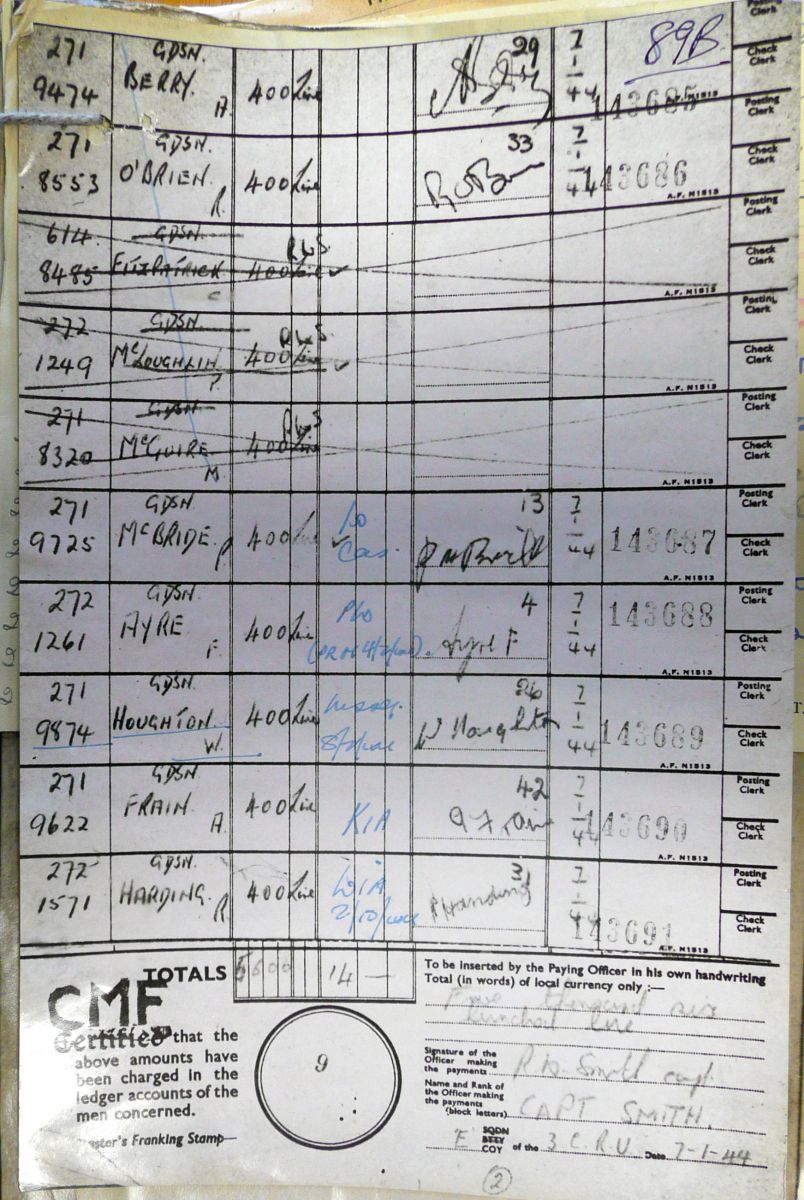 Posting Clerk
271 GDSN. 29 7 89B
9474 BERRY. A. 400 Lire 1 44 143685 A.F. N1513 Check Clerk
271 GDSN. 33 7 Posting Clerk
8553 O'BRIEN. R. 400 Lire 1 44 143686 A.F. N1513 Check Clerk
614 GDSN. RWS Posting Clerk
8485 FITZPATRICK C 400 Lire ✓ A.F. N1513 Check Clerk
272 GDSN. RWS Posting Clerk
1249 McLOUGHLIN P. 400 Lire ✓ A.F. N1513 Check Clerk
271 GDSN RWS Posting Clerk
8320 McGUIRE. M 400 Lire A.F. N1513 Check Clerk
271 GDSN 13 7 Posting Clerk
9725 McBRIDE. P 400 Lire ✓ Cas. 1 44 143687 A.F. N1513 Check Clerk
272 GDSN. 4 7 Posting Clerk
1261 AYRE F. 400 Lire Ayre F 1 44 143688 A.F. N1513 Check Clerk
271 GDSN. 26 7 Posting Clerk
9874 HOUGHTON. W. 400 Lire W Houghton 1 44 143689 A.F. N1513 Check Clerk
271 GDSN. 42 7 Posting Clerk
9622 FRAIN. A. 400 Lire KIA A Frain 1 44 143690 A.F. N1513 Check Clerk
272 GDSN. 31 7 Posting Clerk
1571 HARDING. R. 400 Lire WIA R Harding 1 44 143691 A.F. N1513 Check Clerk
TOTALS 5600 14 —
To be inserted by the Paying Officer in his own handwriting
Total (in words) of local currency only :—
Five thousand six
hundred lire
CMF
Certified that the
above amounts have
been charged in the
ledger accounts of the
men concerned.
9
Signature of the
Officer making
the payments
Smith capt
Name and Rank of
the Officer making
the payments
(block letters)
CAPT SMITH.
Franking Stamp—
SQDN
BTTY
E COY of the 3 C.R.U Date 7-1-44
2